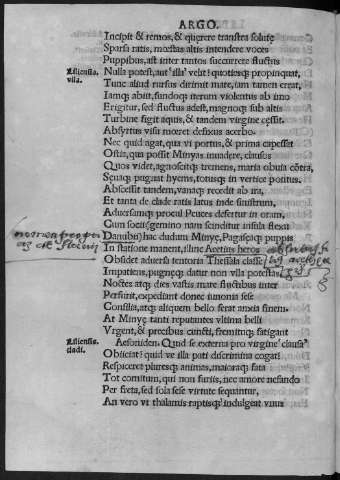 ARGO.
Incipit & remos, & quęrere transtra solutę
Sparsa ratis, mœstas altis intendere voces
Puppibus, ast inter tantos succurrere fluctus
Nulla potest, aut illis velit? quotiesq; propinquat,
Tunc aliud rursus dirimit mare, iam tamen creat,
Iamq; abiit, fundoq; iterum violentus ab imo
Erigitur, sed fluctus adest, magnoq; sub altis
Turbine figit aquis, & tandem virgine cessit.
Absyrtus visu mœret defixus acerbo.
Nec quid agat, qua vi portus, & prima capessat
Ostia, qui possit Minyas inuadere, clausos
Quos videt, agnoscitq; tremens, maria obuia cōtra,
Sęuaq; pugnat hyems, totusq; in vertice pontus.
Abscessit tandem, vanaq; recedit ab ira,
Et tanta de clade ratis latus inde sinistrum,
Aduersumq; procul Peuces defertur in oram,
Cum socijs (gemino nam scinditur insula flexu
Danubis) hac dudum Minyę, Pagaseaq; puppis
In statione manent, illinc Aeetius heros
Obsidet aduersa tentoria Thessala classe
Impatiens, pugnęq; datur non vlla potestas,
Noctes atq; dies vastis mare fluctibus inter
Perfurit, expediant donec iunonia sese
Consilia, atq; aliquem bello ferat anxia finem.
At Minyę tanti reputantes vltima belli
Vrgent, & precibus cuncti, fremituq; fatigant
Aesoniden. Quid se externa pro virgine clausos
Obijciat? quid ve illa pati discrimina cogat?
Respiceret pluresq; animas, maioraq; fata
Tot comitum, qui non furijs, nec amore nefando
Per freta, sed sola sese virtute sequantur,
An vero vt thalamis raptisq; indulgeat vnus